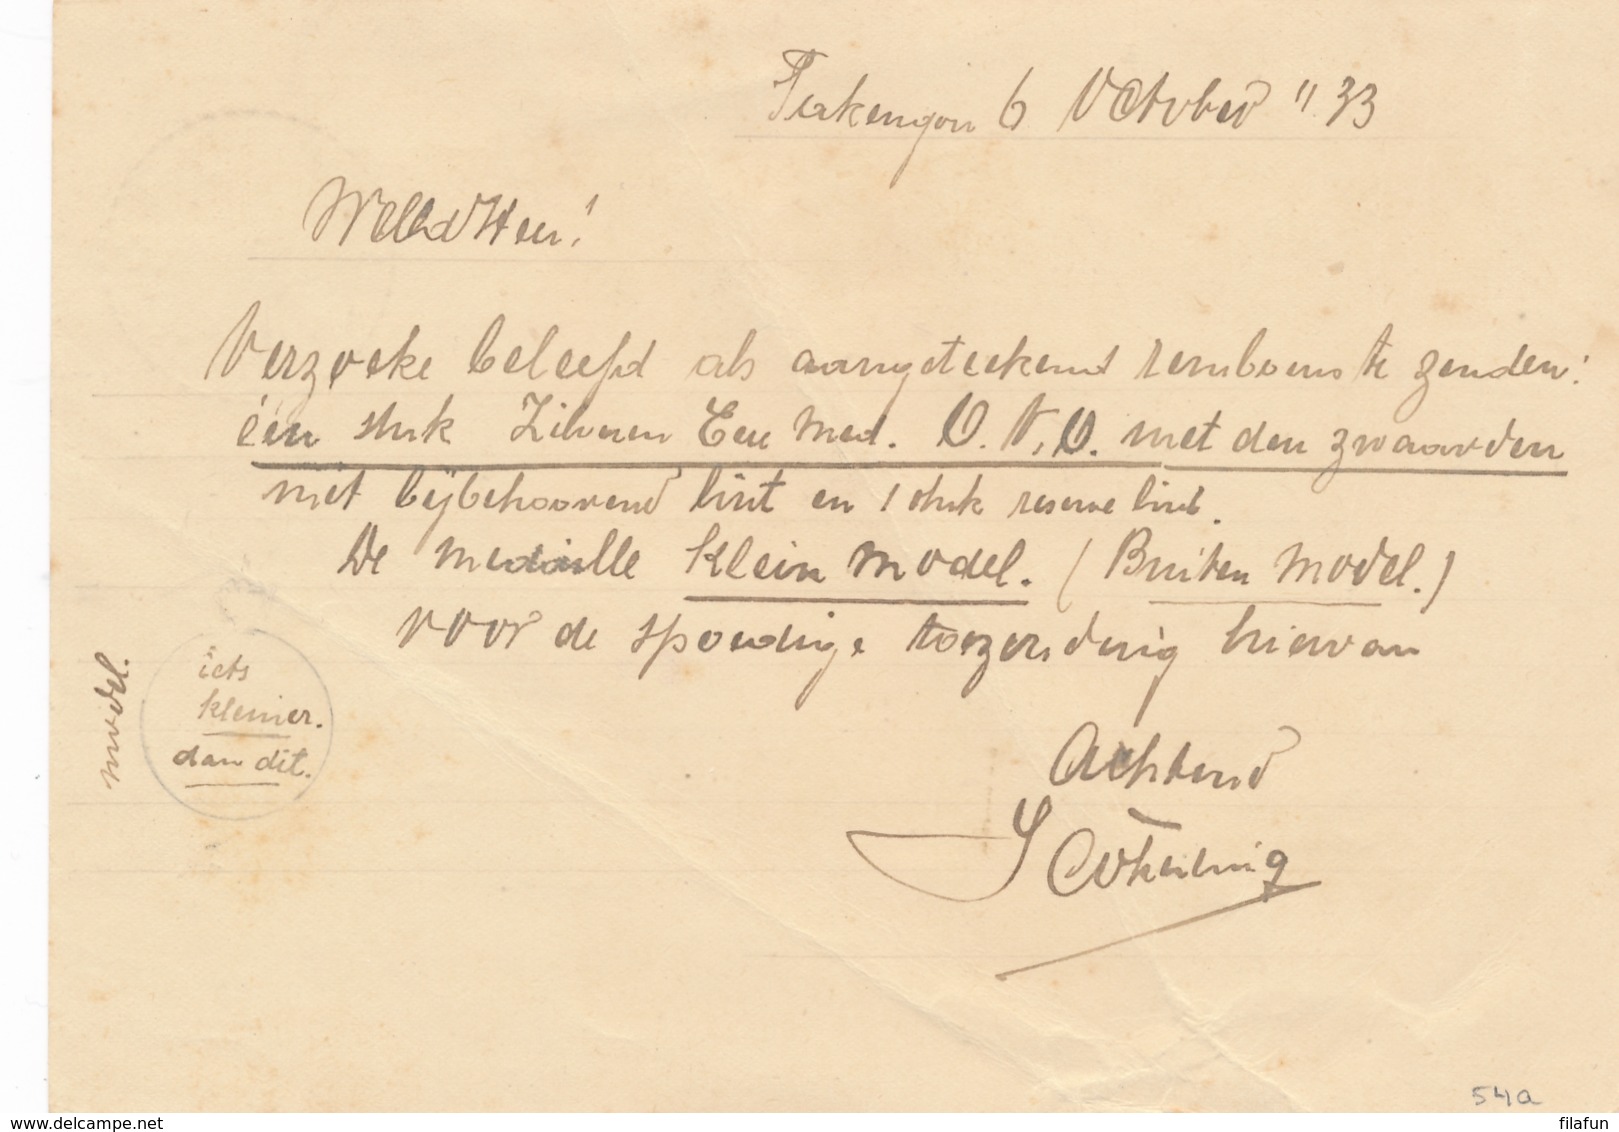 Takengon 6 October "33
WelEd Heer!
Verzoeke beleefd als aangeteekend rembours te zenden:
één stuk Zilveren Eere Med. O.N.O. met den zwaarden
met bijbehoorend lint en 1 stuk reserve lint.
De medaille klein model. (Buiten model.)
voor de spoedige toezending hiervan
model.
iets
kleiner.
dan dit.
Achtend
54a
www.delcampe.net
filafun